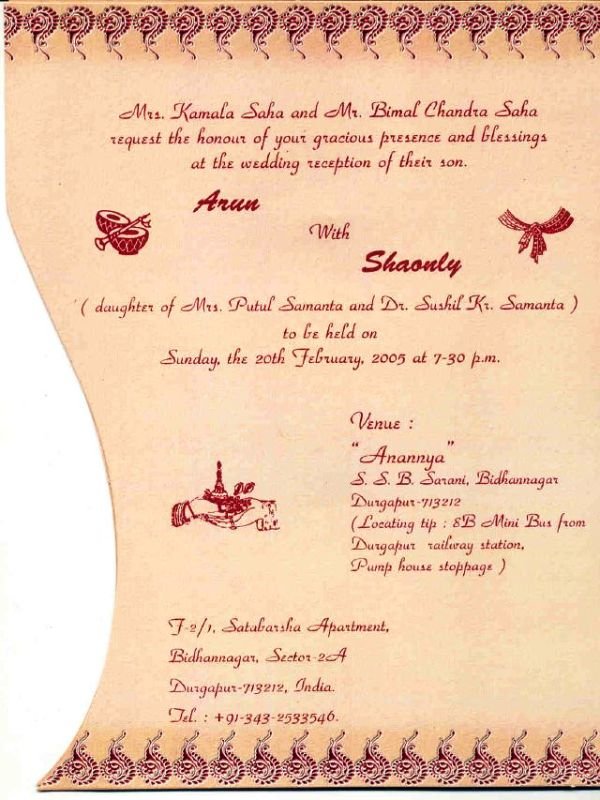 Mrs. Kamala Saha and Mr. Bimal Chandra Saha
request the honour of your gracious presence and blessings
at the wedding reception of their son.
Arun
With
Shaonly
( daughter of Mrs. Putul Samanta and Dr. Sushil Kr. Samanta )
to be held on
Sunday, the 20th February, 2005 at 7-30 p.m.
Venue :
"Anannya"
S. S. B. Sarani, Bidhannagar
Durgapur-713212
(Locating tip : 8B Mini Bus from
Durgapur railway station,
Pump house stoppage )
F-2/1, Satabarsha Apartment,
Bidhannagar, Sector-2A
Durgapur-713212, India.
Tel. : +91-343-2533546.